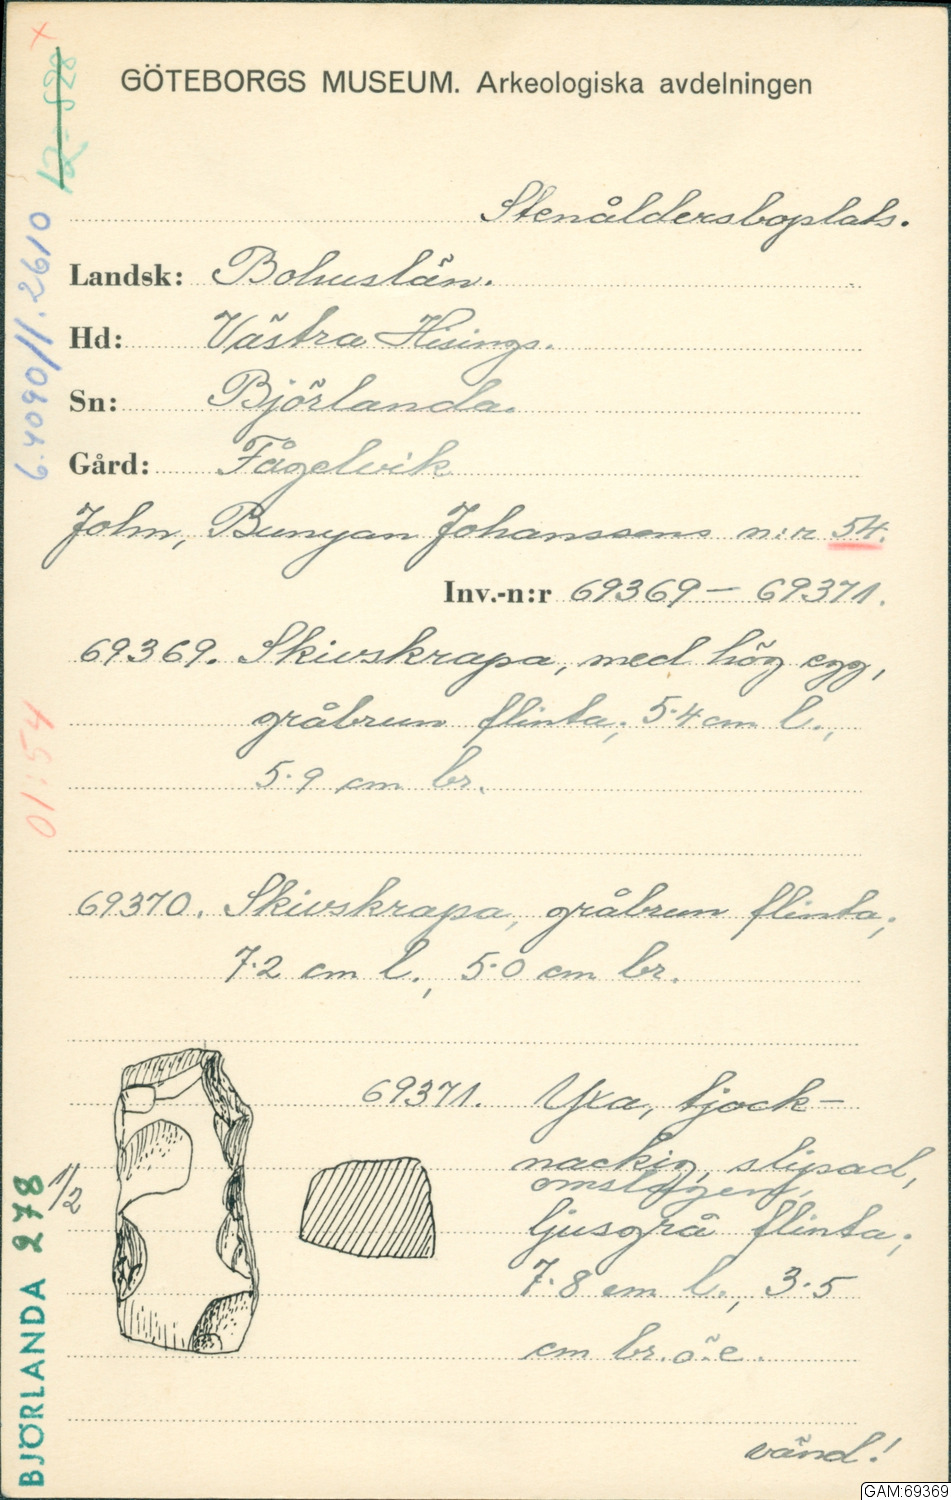 GÖTEBORGS MUSEUM. Arkeologiska avdelningen
Stenåldersboplats.
Landsk: Bohuslän.
Hd: Västra Hisings.
Sn: Björlanda.
Gård: Fågelvik
John, Bunyan Johanssons n:r 54.
Inv.-n:r 69369 – 69371.
69369. Skivskrapa, med hög egg,
gråbrun flinta; 5.4 cm l.,
5.9 cm br.
69370. Skivskrapa, gråbrun flinta;
7.2 cm l., 5.0 cm br.
69371. Yxa, tjock-
nackig, slipad,
omslagen,
ljusgrå flinta;
7.8 cm l., 3.5
cm br. ö. e.
vänd!
1/2
x
12-528
6.4090/1.2610
01:54
BJÖRLANDA 278
GAM:69369